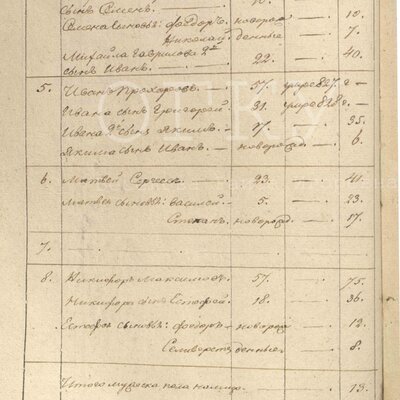 сынъ Семенъ. — 10. — — —
Семена сыновья: Федоръ. новорож — 10.
Николай денные — 7.
Михайла Гавриловъ 2й
сынъ Иванъ. — 22. — — 40.
5. Иванъ Прохоровъ. — 57. умре 827 г —
Ивана сынъ Григорей 31. умре 828 г. —
Ивана 2й сынъ Якимъ — 17. — — 35.
Якима сынъ Иванъ. — новорож. — 6.
6. Матвей Сергеевъ. — 23. — — 41.
Матвея сыновья: Василей. — 5. — — 23.
Степанъ. новорожд. — 17.
7.
8. Никифоръ Максимовъ. 57. — — 75.
Никифора сынъ Естафей. 18. — — 36.
Естафея сыновья: Федоръ — новорож — 12.
Селиверстъ денные — 8.
Итого мужеска пола налицо. — 13.